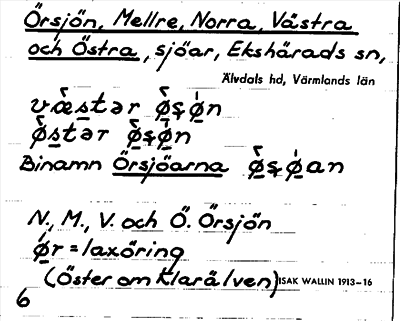 Örsjön, Mellre, Norra, Västra
och Östra, sjöar, Ekshärads sn,
Älvdals hd, Värmlands län
Binamn Örsjöarna
N., M., V. och Ö. Örsjön
ǿr = laxöring
(Öster om Klarälven) ISAK WALLIN 1913–16
6